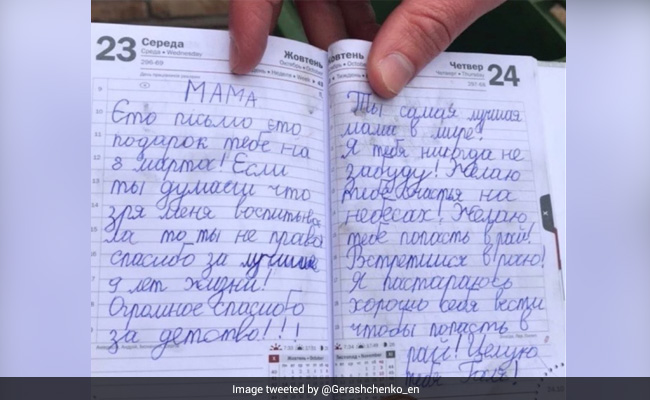 23 Середа
Среда • Wednesday
296-69
Жовтень
МАМА
Єто письмо єто
подарок тебе на
8 марта! Если
ты думаеш что
зря меня воспитыва
ла то ты не права
спасибо за лучшие
9 лет жизни!
Огромное спасибо
за детство!!!
Жовтень
Четвер 24
Четверг • Thursday
297-68
Ты самая лучшая
мама в мире!
Я тебя никогда не
забуду! Желаю
тебе счастья на
небесах! Желаю
тебе попасть в рай!
Встретимся в раю!
Я постараюсь
хорошо себя вести
чтобы попасть в
рай! Целую
тебя Галя!
Image tweeted by @Gerashchenko_en